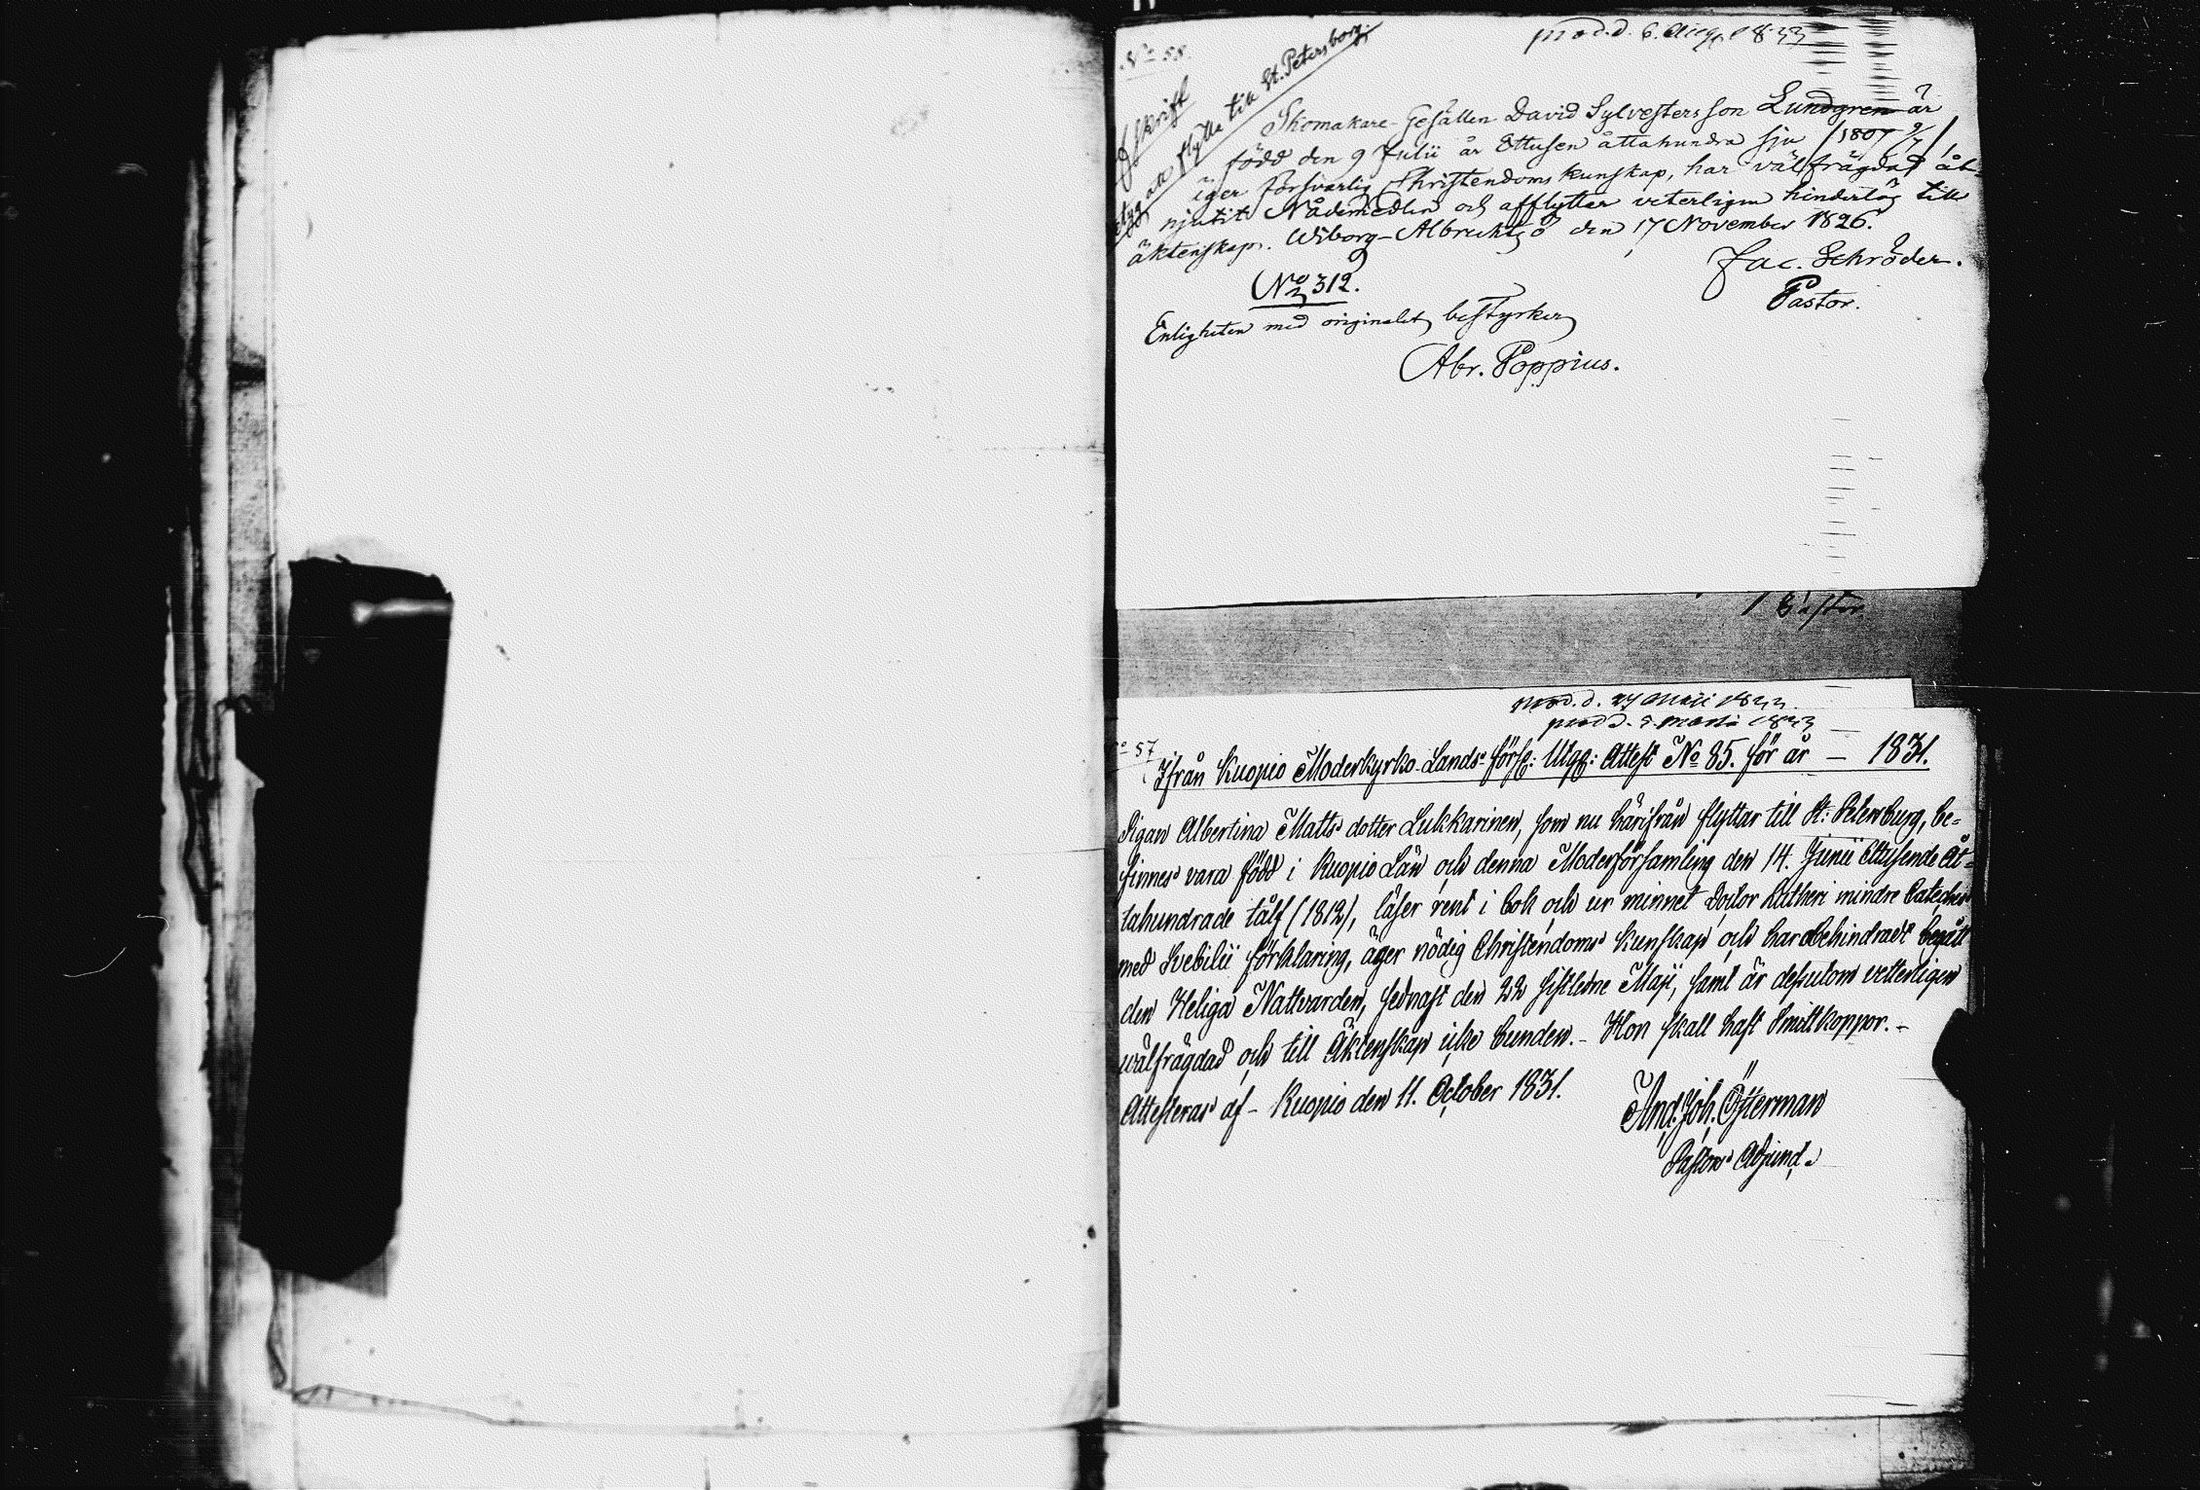 No 58.
prod. d. 6. Aug. 1833
Afskrift
att flytta till St. Petersborg
Skomakare-Gesällen David Sylvestersson Lundgren är
född den 9 Julii år Ettusen åttahundra sju /1807 9/7/,
äger försvarlig Christendoms kunskap, har välfrägdad åt-
njutit Nådemedlen och afflyttar veterligen hinderlös till
äktenskap. Wiborg-Albrechtsö den 17 November 1826.
Jac. Schröder.
Pastor.
No 312.
Enligheten med originalet bestyrker
Abr. Poppius.
Pastor.
prod. d. 27 Maji 1833.
prod. d. 5. Martii 1833
No 57
Ifrån Kuopio Moderkyrko-Lands förs: Utgg: Attest No 85. för år – 1831.
Pigan Albertina Matts dotter Lukkarinen, som nu härifrån flyttar till St: Petersburg, be=
finnes vara född i Kuopio Län och denna Moderförsamling den 14. Junii Ettusende Åt=
tahundrade tålf (1812), läser rent i bok och ur minnet Doctor Lutheri mindre Cateches
med Svebilii förklaring, äger nödig Christendoms kunskap och har obehindradt begått
den Heliga Nattvarden, sednast den 22 sistledne Maji, samt är dessutom vetterligen
wälfrägdad och till Äktenskap icke bunden. – Hon skall haft Smittkoppor. –
Attesteras af – Kuopio den 11. October 1831.
And. Joh. Österman
Pastors Adjund.